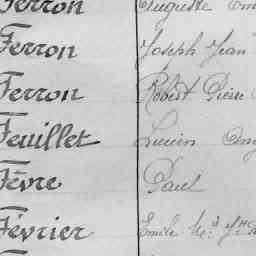 Ferron Auguste
Ferron Joseph Jean
Ferron Robert Pierre
Feuillet Lucien
Fèvre Paul
Février Emile